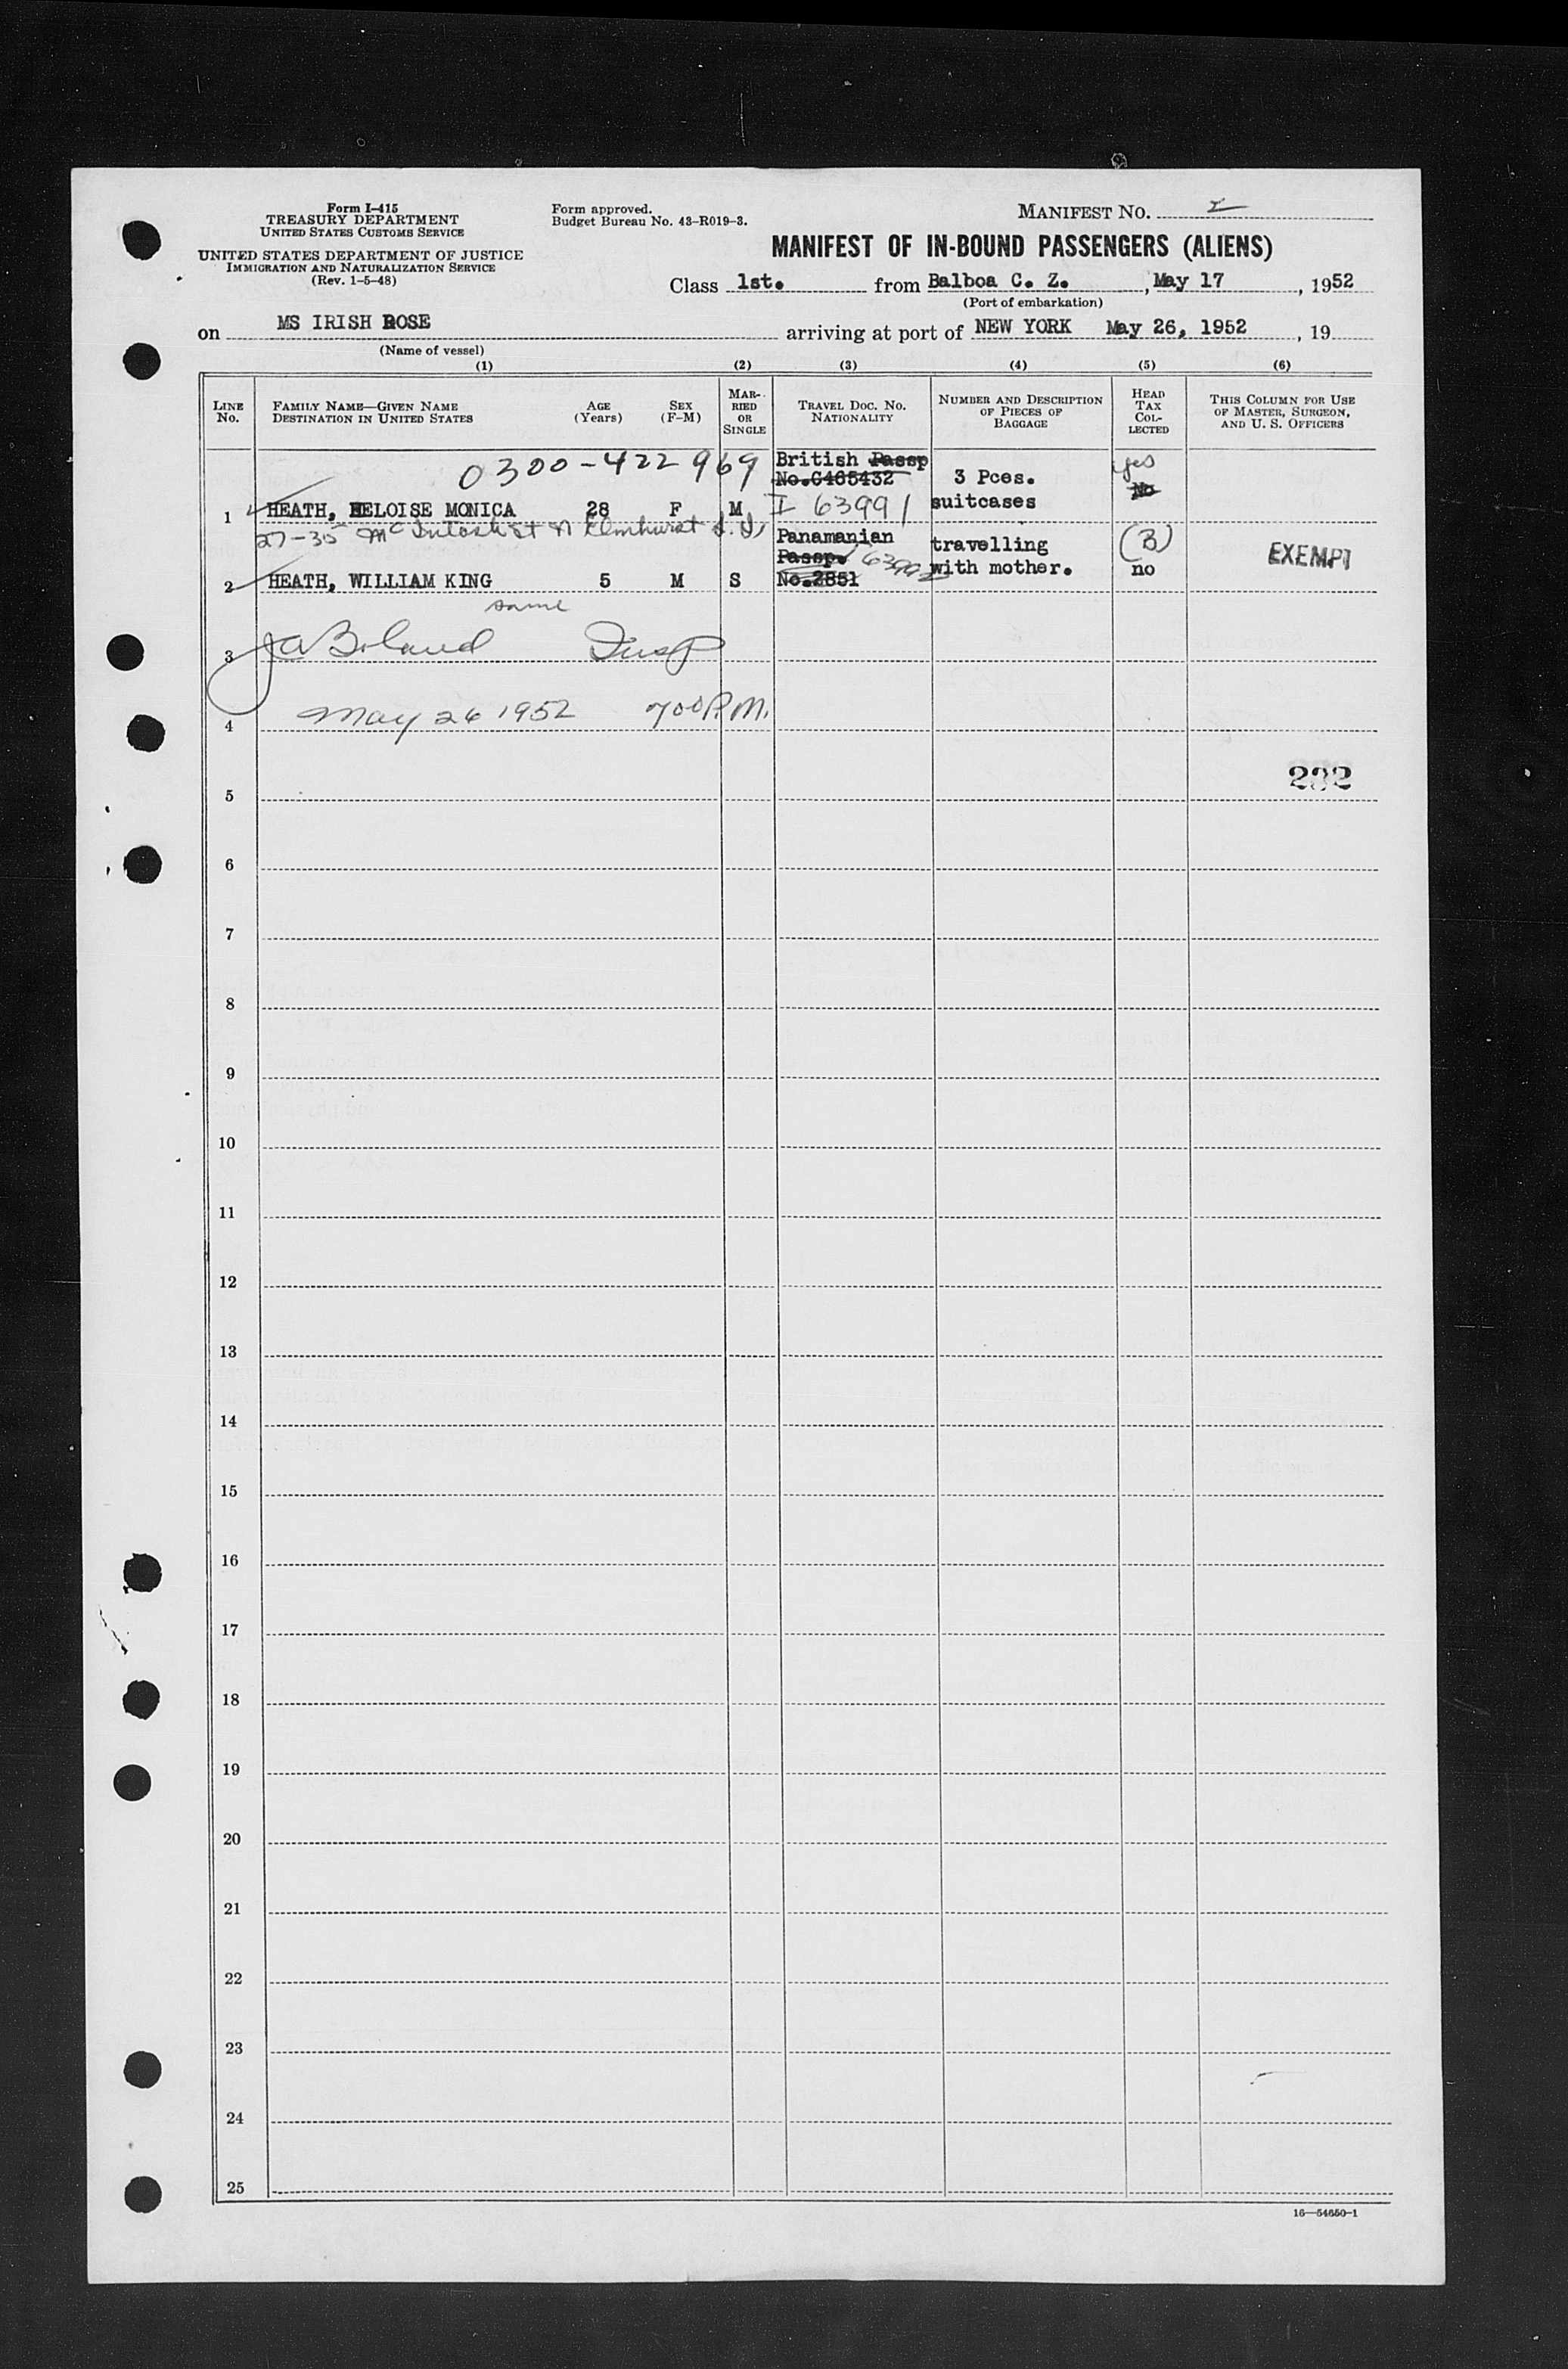 Form I-415
TREASURY DEPARTMENT
UNITED STATES CUSTOMS SERVICE
UNITED STATES DEPARTMENT OF JUSTICE
IMMIGRATION AND NATURALIZATION SERVICE
(Rev. 1-5-48)
Form approved.
Budget Bureau No. 43-R019-3.
MANIFEST NO.
MANIFEST OF IN-BOUND PASSENGERS (ALIENS)
Class 1st. from Balboa C. Z., May 17, 1952
(Port of embarkation)
on MS IRISH ROSE arriving at port of NEW YORK May 26, 1952, 19
(Name of vessel)
(1) (2) (3) (4) (5) (6)
LINE No.
FAMILY NAME—GIVEN NAME
DESTINATION IN UNITED STATES
AGE (Years)
SEX (F-M)
MARRIED OR SINGLE
TRAVEL DOC. NO. NATIONALITY
NUMBER AND DESCRIPTION OF PIECES OF BAGGAGE
HEAD TAX COLLECTED
THIS COLUMN FOR USE OF MASTER, SURGEON, AND U. S. OFFICERS
0300-422969
British Passp
No.C465432
3 Pces.
yes
No
1 HEATH, HELOISE MONICA 28 F M I 63991 suitcases
27-35 McIntosh St N Elmhurst L.I.
Panamanian
travelling
(B)
EXEMPT
Passp. 63992 with mother. no
2 HEATH, WILLIAM KING 5 M S No.2851
same
3 J A Boland Insp
4 May 26 1952 700 P.M.
232
5
6
7
8
9
10
11
12
13
14
15
16
17
18
19
20
21
22
23
24
25
16—54650-1